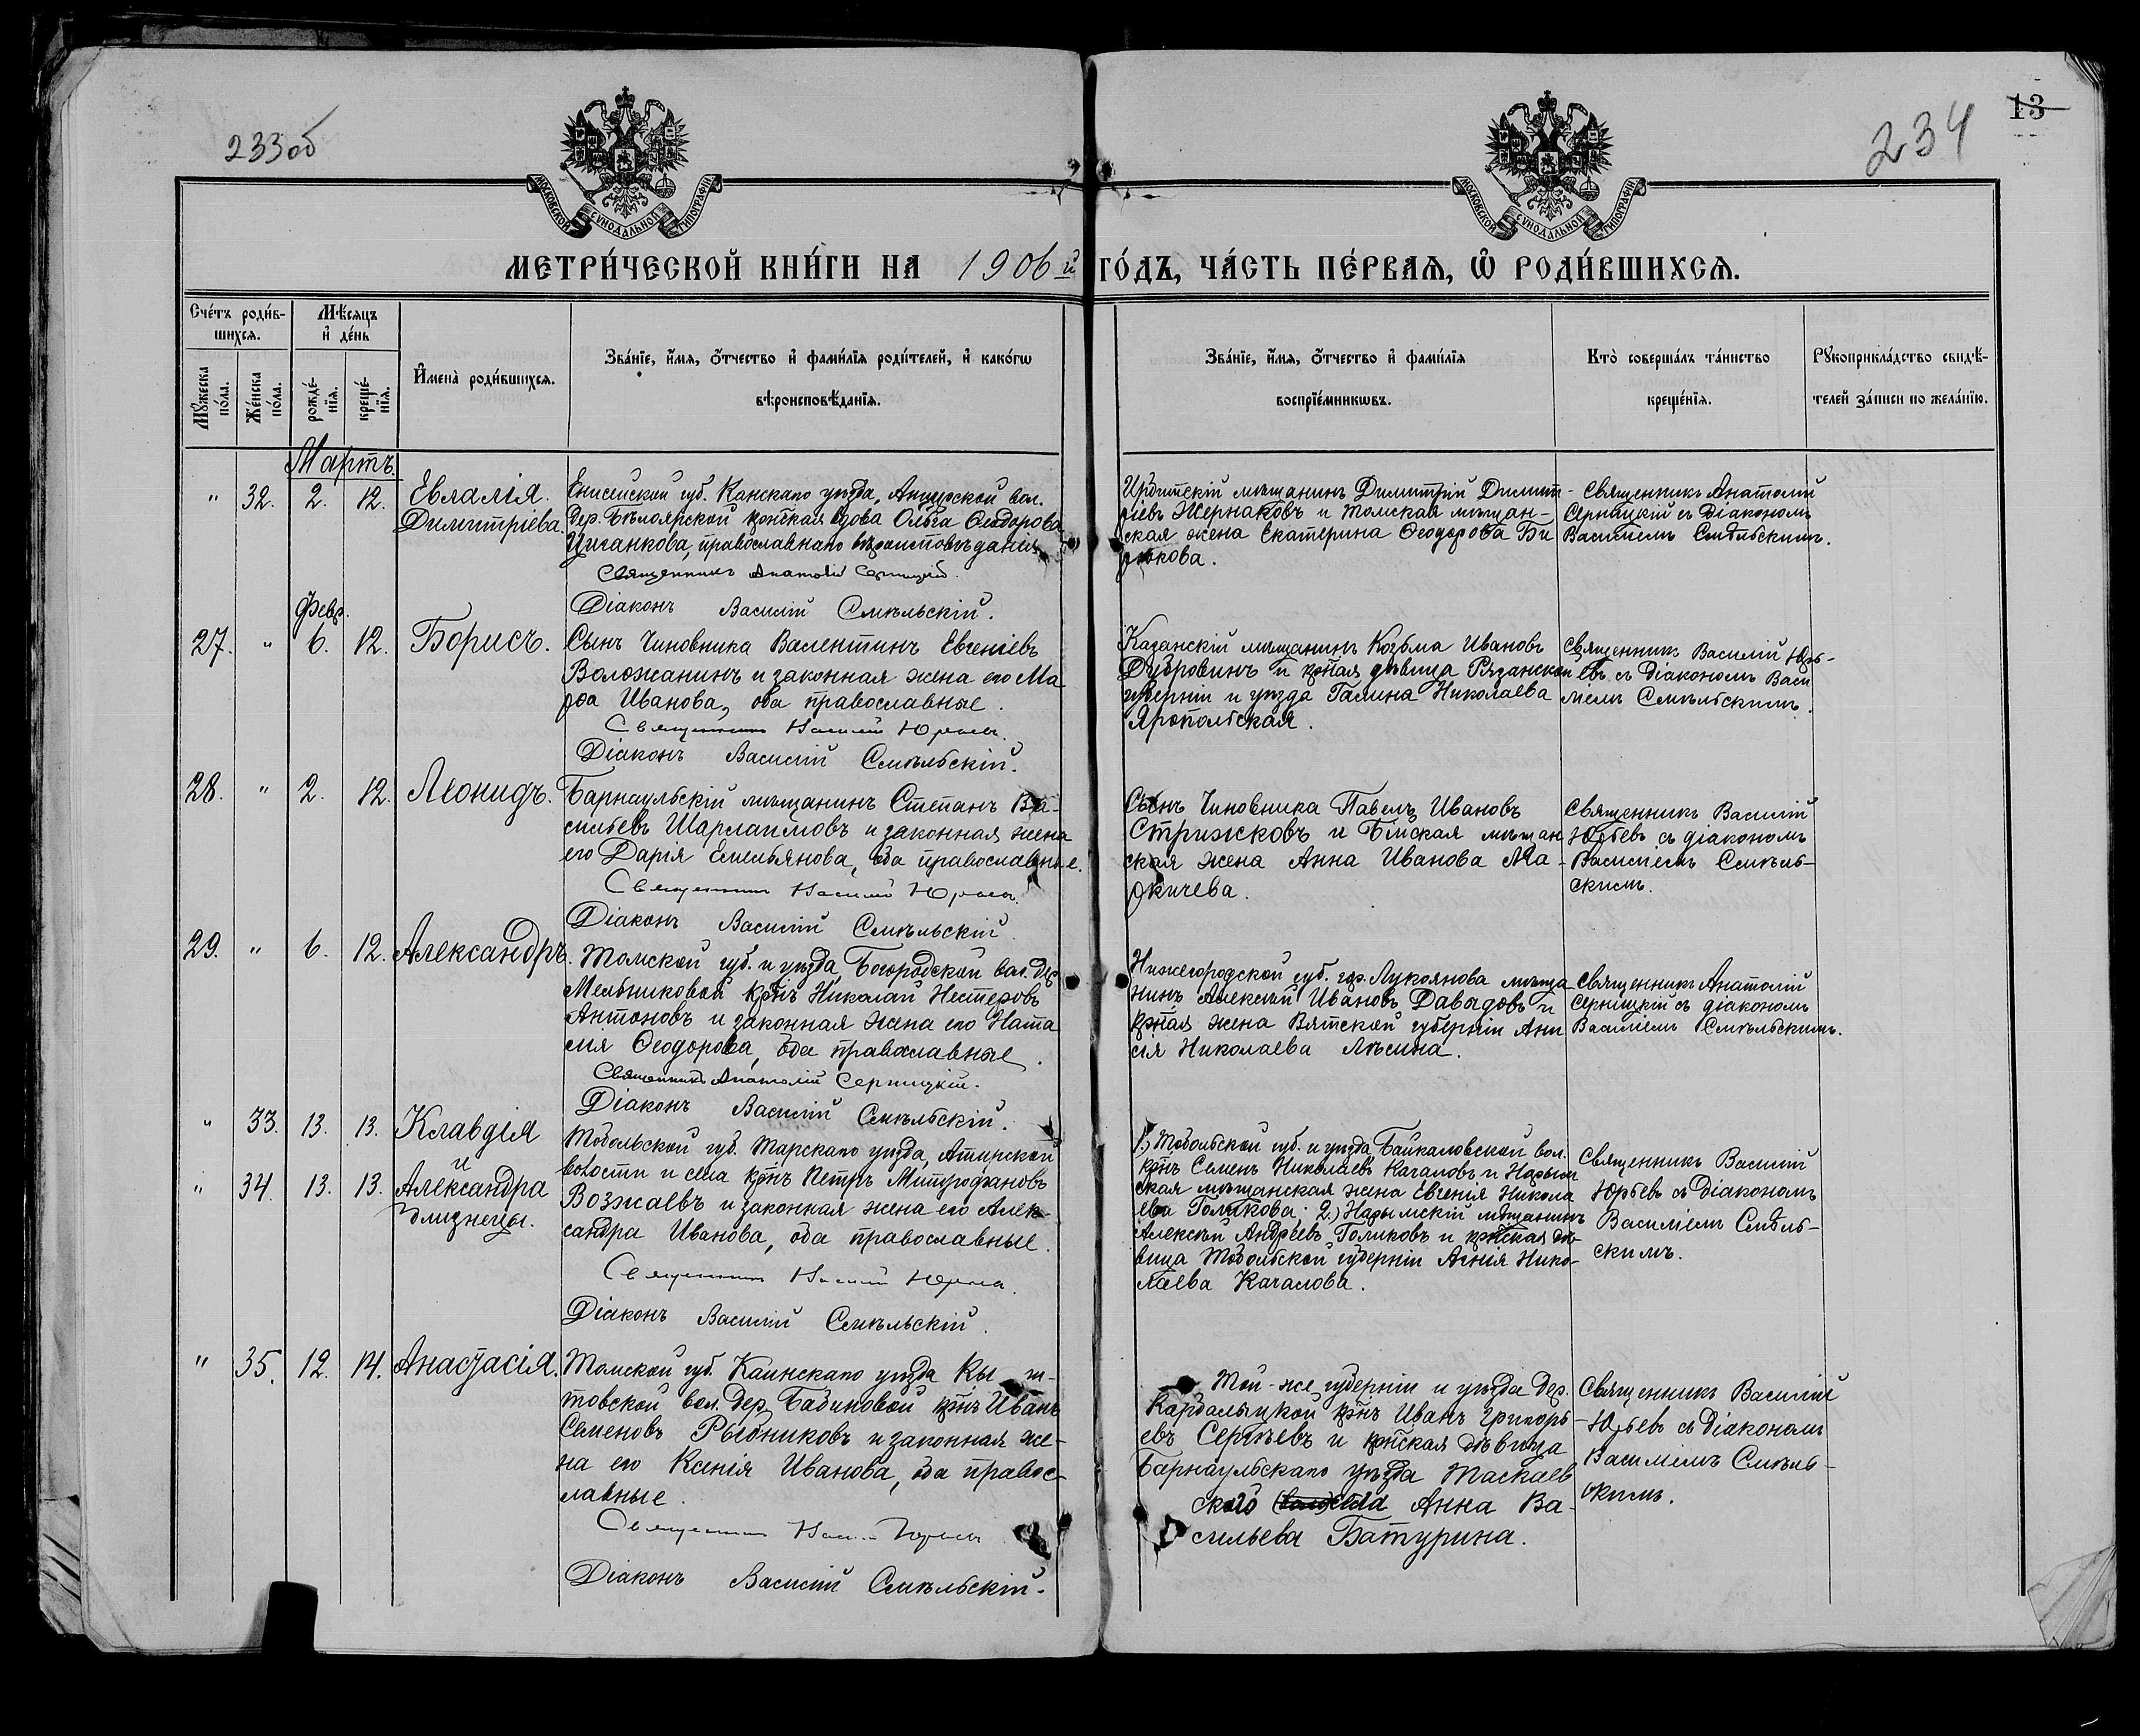 233об
234
13
МОСКОВСКОЙ СУНОДАЛЬНОЙ ТИПОГРАФІИ
МОСКОВСКОЙ СУНОДАЛЬНОЙ ТИПОГРАФІИ
МЕТРИ́ЧЕСКОЙ КНИ́ГИ НА 1906й ГО́ДЪ, ЧА́СТЬ ПЕ́РВАѦ, Ѡ҆ РОДИ́ВШИХСѦ.
Сче́тъ роди́в-
шихсѧ.
Мꙋ́жеска по́ла.
Же́нска по́ла.
Мѣ́сѧцъ
и҆ де́нь
рожде́-
нїѧ.
креще́-
нїѧ.
И҆мена̀ роди́вшихсѧ.
Зва́нїе, и҆́мѧ, ѻ҆́тчество и҆ фами́лїѧ роди́телей, и҆ како́гѡ
вѣроисповѣ́данїѧ.
Зва́нїе, и҆́мѧ, ѻ҆́тчество и҆ фами́лїѧ
воспрїе́мникѡвъ.
Кто̀ соверша́лъ та́инство
креще́нїѧ.
Рꙋкоприкла́дство свидѣ́-
телей за́писи по жела́нїю.
Мартъ.
" 32. 2. 12. Евлалія.
Димитріева.
Енисейской губ. Канскаго уѣзда, Анцирской вол.
дер. Бѣлоярской крнская вдова Ольга Ѳеодорова
Цыганкова, православнаго вѣроисповѣданія.
Священникъ Анатолій Серницкій.
Діаконъ Василій Смѣльскій.
Ирбитскій мѣщанинъ Димитрій Димит-
ріевъ Жернаковъ и томская мѣщан-
ская жена Екатерина Ѳеодорова Би
рюкова.
Священникъ Анатолій
Серницкій съ діакономъ
Василіемъ Смѣльскимъ.
Февр.
27. " 6. 12. Борисъ.
Сынъ Чиновника Валентинъ Евгеніевъ
Воложанинъ и законная жена его Ма
рѳа Иванова, оба православные.
Священникъ Василій Юрьевъ.
Діаконъ Василій Смѣльскій.
Казанскій мѣщанинъ Козьма Ивановъ
Дубровинъ и крная дѣвица Рязанской
губерніи и уѣзда Галина Николаева
Яропольская.
Священникъ Василій Юрь-
евъ съ діакономъ Васи
ліемъ Смѣльскимъ.
28. " 2. 12. Леонидъ.
Барнаульскій мѣщанинъ Степанъ Ва-
сильевъ Шарлаимовъ и законная жена
его Дарія Емельянова, оба православные.
Священникъ Василій Юрьевъ.
Діаконъ Василій Смѣльскій
Сынъ Чиновника Павелъ Ивановъ
Стрижковъ и Бійская мѣщан
ская жена Анна Иванова Ма-
ркичева.
Священникъ Василій
Юрьевъ съ діакономъ
Василіемъ Смѣль-
скимъ.
29. " 6. 12. Александръ.
Томской губ. и уѣзда, Богородской вол. дер.
Мельниковой крнъ Николай Нестеровъ
Антоновъ и законная жена его Ната
лія Ѳеодорова, оба православные.
Священникъ Анатолій Серницкій.
Діаконъ Василій Смѣльскій.
Нижегородской губ. гор. Лукоянова мѣща
нинъ Алексѣй Ивановъ Давыдовъ и
крная жена Вятской губерніи Ани
сія Николаева Лѣсина.
Священникъ Анатолій
Серницкій съ діакономъ
Василіемъ Смѣльскимъ.
" 33. 13. 13. Клавдія
и
" 34. 13. 13. Александра
близнецы.
Тобольской губ. Тарскаго уѣзда, Атирской
волости и села крнъ Петръ Митрофановъ
Возжаевъ и законная жена его Алек-
сандра Иванова, оба православные.
Священникъ Василій Юрьевъ.
Діаконъ Василій Смѣльскій.
1.) Тобольской губ. и уѣзда, Байкаловской вол.
крнъ Семенъ Николаевъ Качаловъ и Нарым
ская мѣщанская жена Евгенія Никола
ева Голикова. 2.) Нарымскій мѣщанинъ
Алексѣй Андреевъ Голиковъ и крнская дѣ-
вица Тобольской губерніи Агнія Нико-
лаева Качалова.
Священникъ Василій
Юрьевъ съ діакономъ
Василіемъ Смѣль-
скимъ.
" 35. 12. 14. Анастасія.
Томской губ. Каинскаго уѣзда Кы ш-
товской вол. дер. Бабиковой крнъ Иванъ
Семеновъ Рыбниковъ и законная же-
на его Ксенія Иванова, оба правос-
лавные.
Священникъ Василій Юрьевъ
Діаконъ Василій Смѣльскій.
Той-же губерніи и уѣзда дер.
крнъ Иванъ Григорь-
евъ Сергѣевъ и крнская дѣвица
Барнаульскаго уѣзда Таскаев
скаго села Анна Ва-
сильева Батурина.
Священникъ Василій
Юрьевъ съ діакономъ
Василіемъ Смѣль-
скимъ.